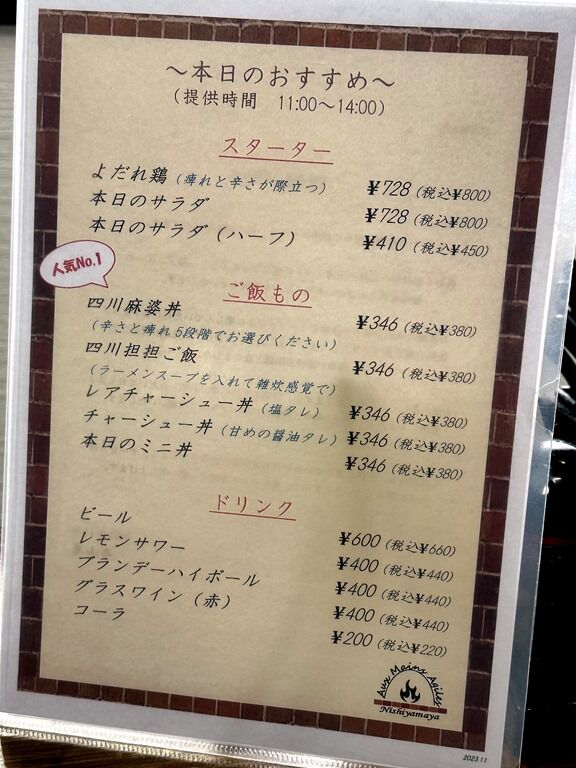 ～本日のおすすめ～
（提供時間　11:00～14:00）
スターター
よだれ鶏（痺れと辛さが際立つ） ¥728（税込¥800）
本日のサラダ ¥728（税込¥800）
本日のサラダ（ハーフ） ¥410（税込¥450）
人気No.1
ご飯もの
四川麻婆丼 ¥346（税込¥380）
（辛さと痺れ 5段階でお選びください）
四川担担ご飯 ¥346（税込¥380）
（ラーメンスープを入れて雑炊感覚で）
レアチャーシュー丼（塩タレ） ¥346（税込¥380）
チャーシュー丼（甘めの醤油タレ） ¥346（税込¥380）
本日のミニ丼 ¥346（税込¥380）
ドリンク
ビール ¥600（税込¥660）
レモンサワー ¥400（税込¥440）
ブランデーハイボール ¥400（税込¥440）
グラスワイン（赤） ¥400（税込¥440）
コーラ ¥200（税込¥220）
Aux Mains Agiles
Nishiyamaya
2023.11